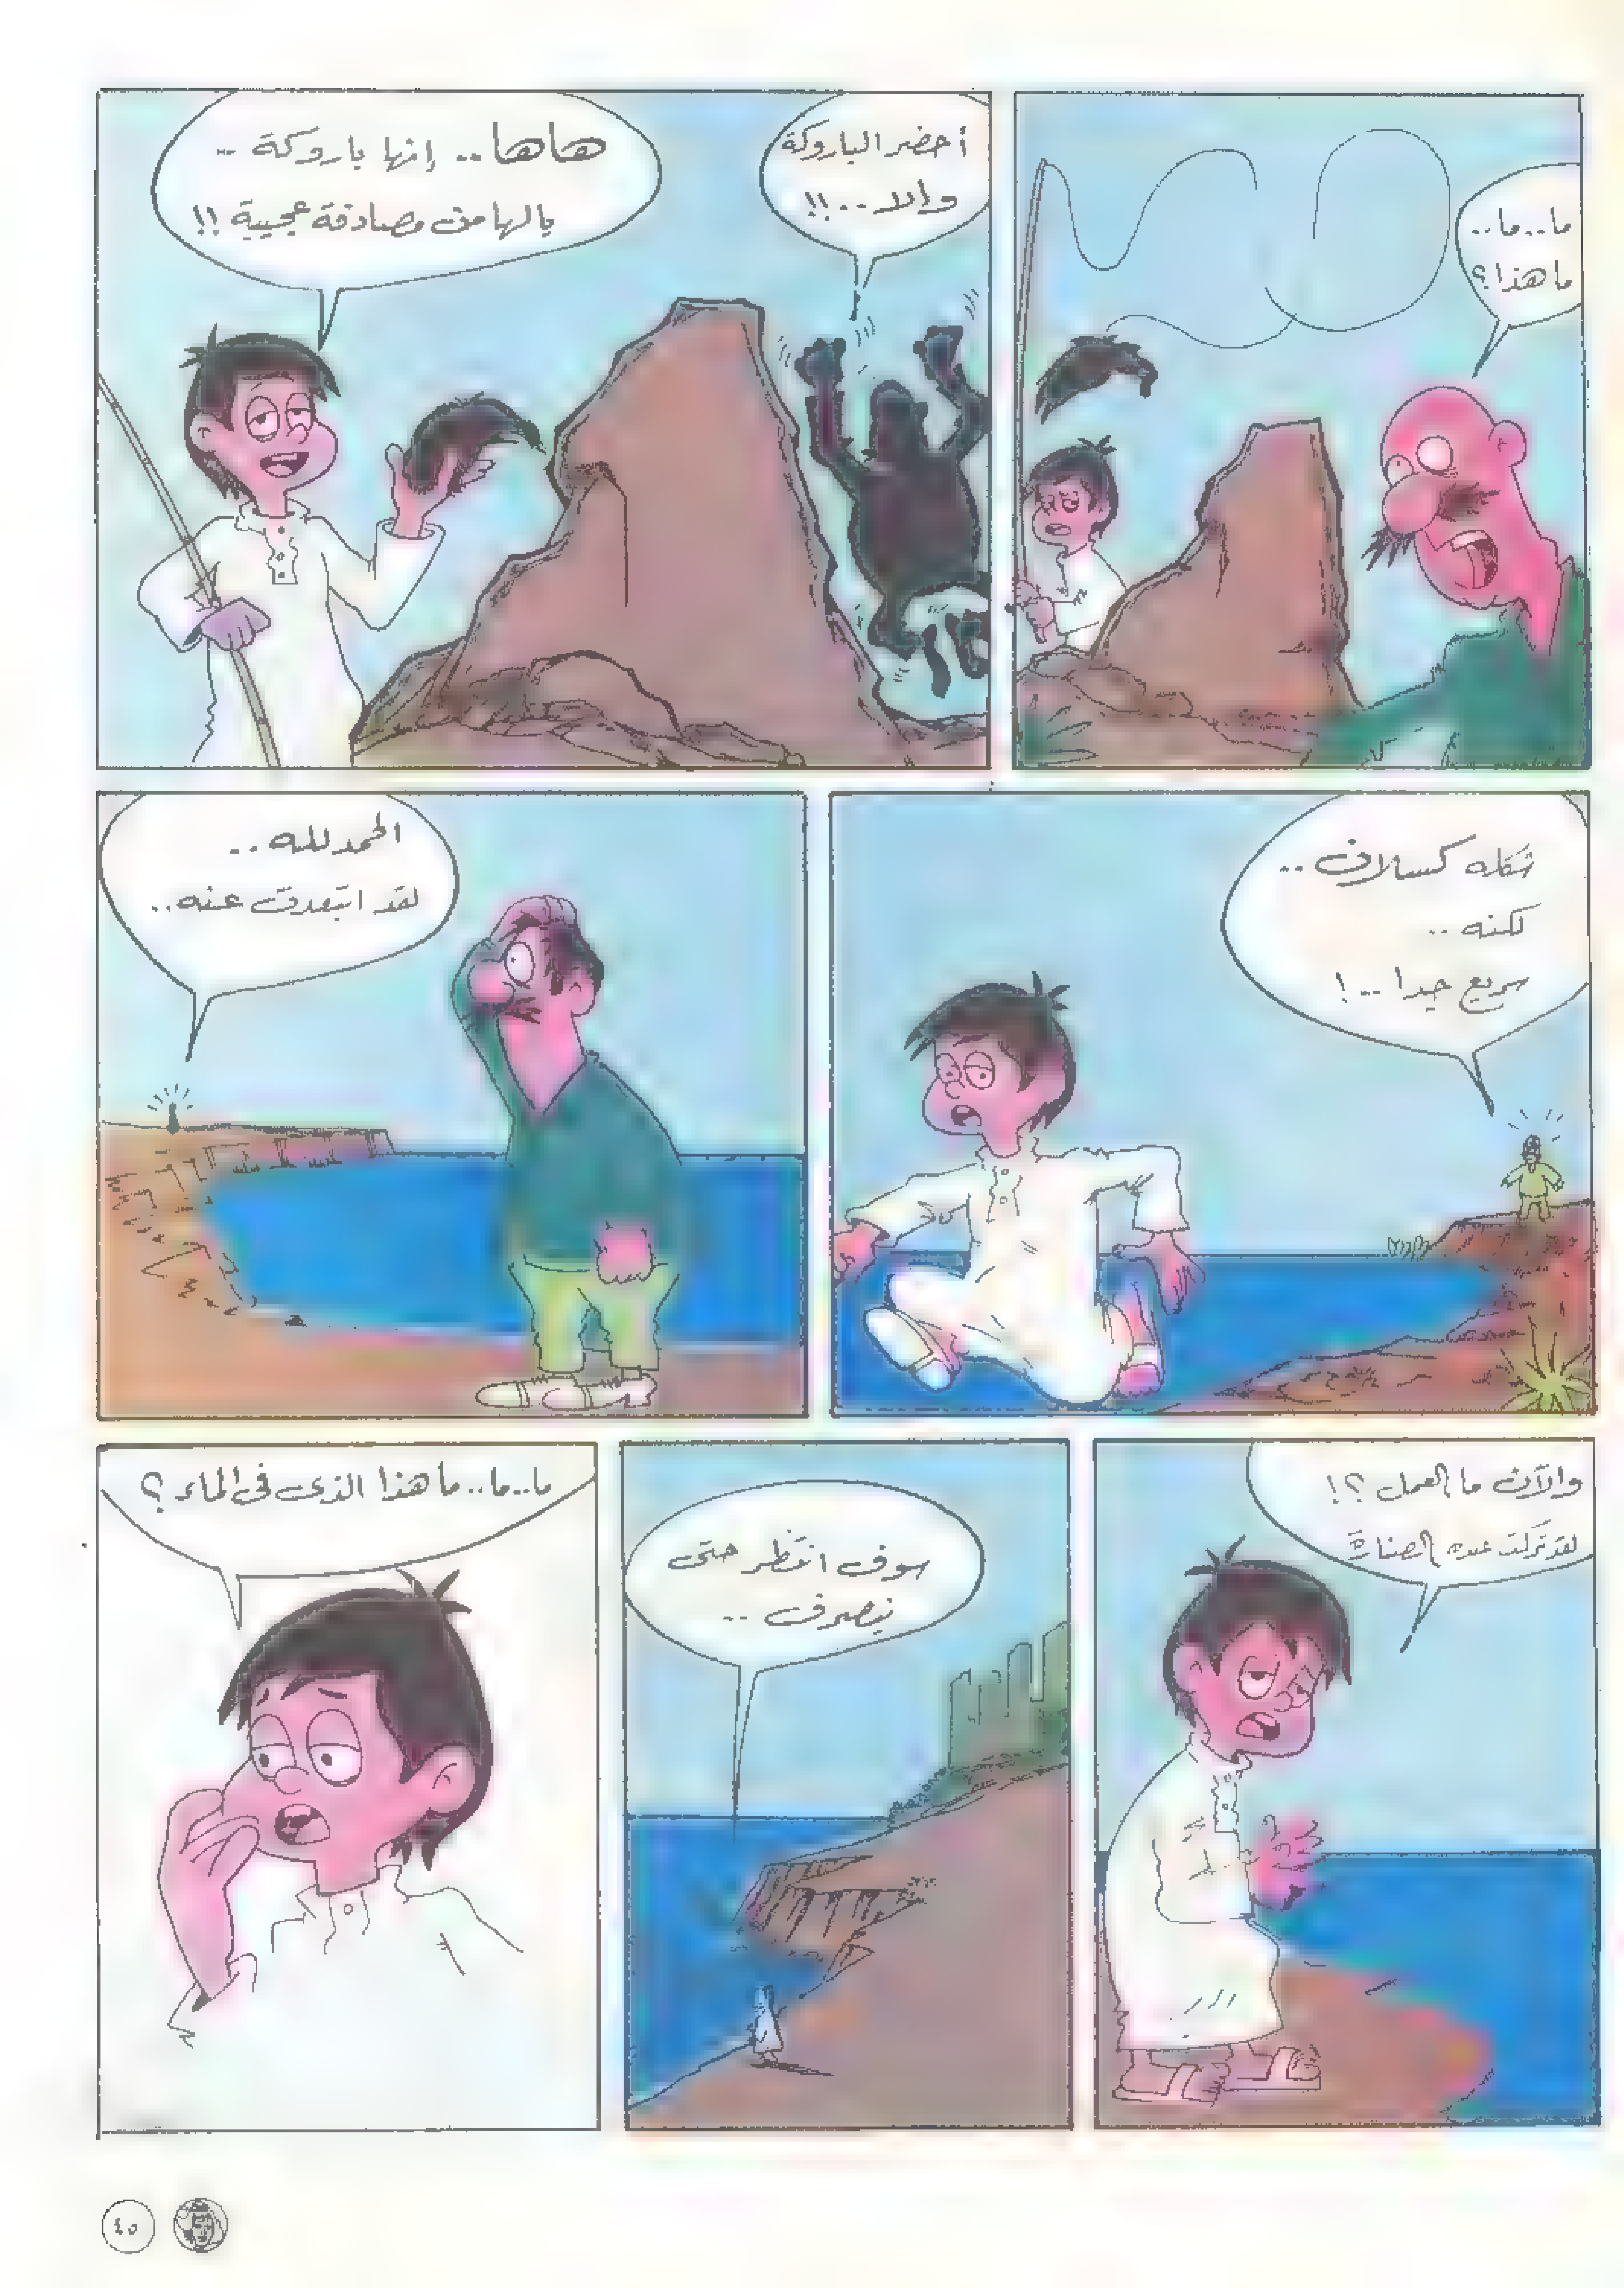 ما..ما..
ما هذا؟
أحضر الباروكة
والا..!!
هاها.. إنها باروكة ..
يالها من مصادفة عجيبة !!
شكله كسلان ..
لكنه ..
سريع جدا ..!
الحمد لله ..
لقد ابتعدت عنه ..
والآن ما العمل ؟!
لقد تركت عنده الصنارة
سوف انتظر حتى
ينصرف ..
ما..ما..ما هذا الذى فى الماء ؟
٤٥